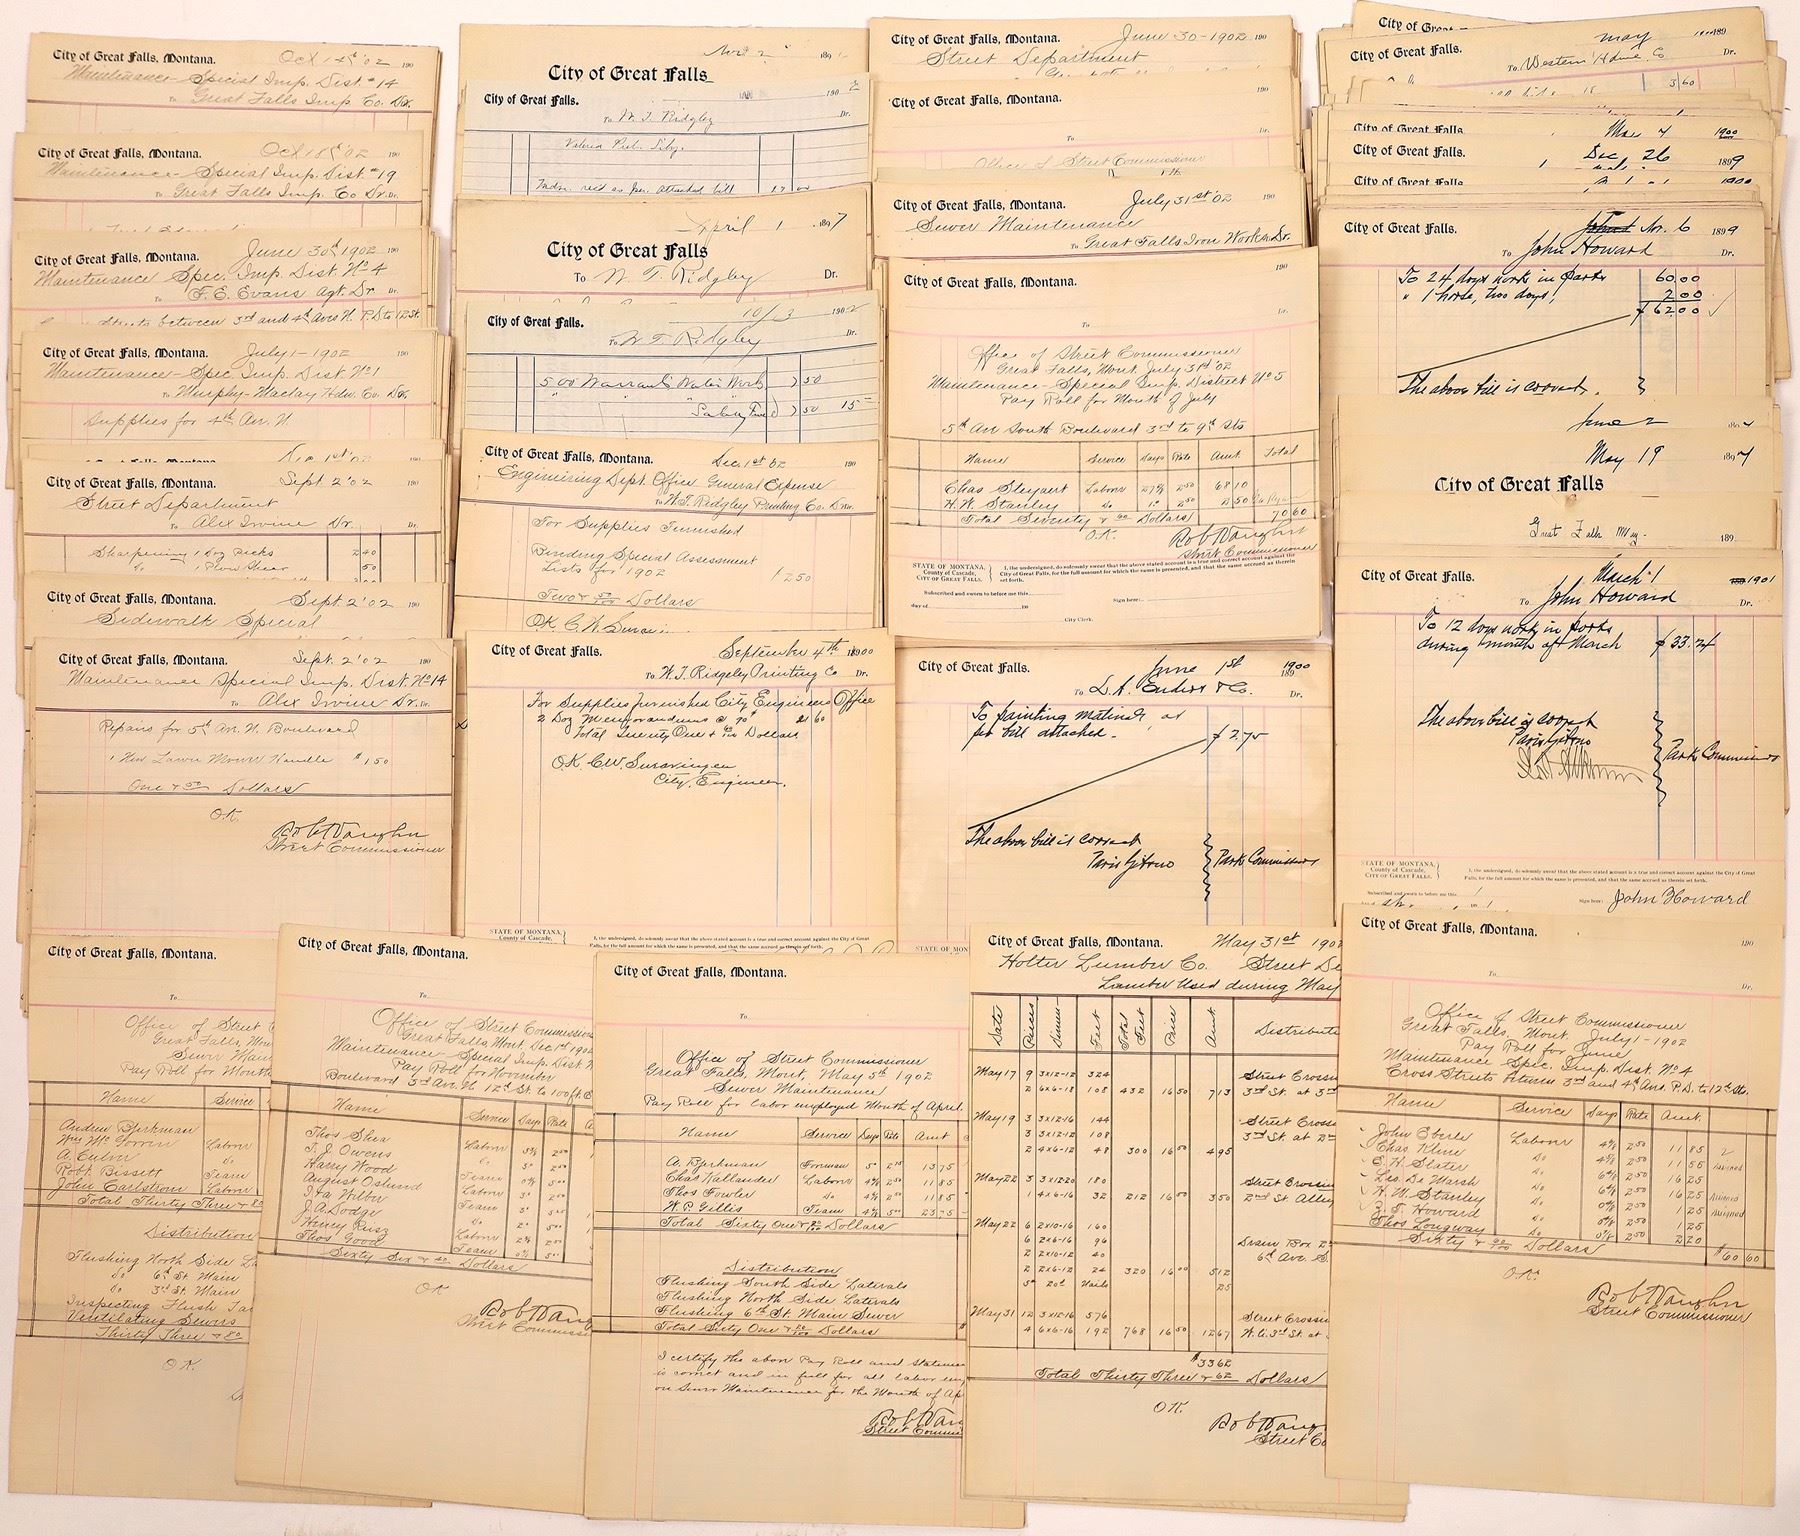 City of Great Falls, Montana. Oct 14th '02 190
Maintenance - Special Imp. Dist. #14
To Great Falls Imp. Co. Dr.
City of Great Falls, Montana. Oct 18th '02 190
Maintenance - Special Imp. Dist. #19
To Great Falls Imp. Co Dr. Dr.
City of Great Falls, Montana. June 30th 1902 190
Maintenance Spec. Imp. Dist No 4
To F. E. Evans Agt. Dr Dr.
Streets between 3rd and 4th Aves N. P.D to 12 St.
City of Great Falls, Montana. July 1-1902 190
Maintenance - Spec. Imp. Dist No 1
To Murphy-Maclay Hdw. Co. Dr.
Supplies for 4th Av. N.
1st '02
City of Great Falls, Montana. Sept 2 '02 190
Street Department
To Alex Irvine Dr Dr.
Sharpening 1 Doz Picks 2 40
do 1 Plow Shear 50
City of Great Falls, Montana. Sept 2 '02 190
Sidewalk Special
City of Great Falls, Montana. Sept. 2 '02 190
Maintenance Special Imp. Dist. No 14
To Alex Irvine Dr. Dr.
Repairs for 5th Av. N. Boulevard
1 New Lawn Mower Handle $1 50
One & 50/100 Dollars
O.K.
Bob Vaughn
Street Commissioner
City of Great Falls, Montana.
To
Office of Street C
Great Falls, Mon
Sewer Main
Pay Roll for Month
Name Service
Andrew Bjerkman
Wm McGovrin Labor
A. Culver do
Robt. Bissett Team
John Carlstrom Labor
Total Thirty Three & 80
Distribution
Flushing North Side La
do 6th St. Main
do 3rd St. Main
Inspecting Flush Tan
Ventilating Sewers
Thirty Three & 80
O.K.
Nov 2 189
City of Great Falls
City of Great Falls. 190 2
To W. T. Ridgley Dr.
as per attached bill 17 00
April 1 1897
City of Great Falls
To W. T. Ridgley Dr.
10/13 1902
City of Great Falls. Dr.
To W T Ridgley
500 Warrants Water Works 7 50
" " " 7 50 15
City of Great Falls, Montana. Dec. 1st '02 190
Engineering Dept. Office General Expense
To W. T. Ridgley Printing Co. Dr.
For Supplies Furnished
Binding Special Assessment
Lists for 1902 $2 50
Two & 50/100 Dollars
O.K. C. W. Swearingen
City of Great Falls. September 4th 1900
To W. T. Ridgeley Printing Co Dr.
For Supplies furnished City Engineers Office
2 Doz Memorandums @ 90¢ 21 60
Total Twenty One & 60/100 Dollars
O.K. C.W. Swearingen
City Engineer.
STATE OF MONTANA,
County of Cascade,
I, the undersigned, do solemnly swear that the above stated account is a true and correct account against the City of Great
Falls, for the full amount for which the same is presented, and that the same accrued as therein set forth.
City of Great Falls, Montana.
To
Office of Street Commissione
Great Falls, Mont. Dec. 1st 1902
Maintenance - Special Imp. Dist. N
Pay Roll for November
Boulevard 3rd Av. N. 12th St. to 100 ft. E
Name Service Days Rate
Thos Shea Labor
T. J. Owens do
Harry Wood Team
August Oslund Labor
Ira Wilber Team
J. A. Dodge do
Henry Reisz Labor
Thos Good Team
Sixty Six & 40 Dollars
O.K
Bob Vaug
Street Commiss
City of Great Falls, Montana.
To
Office of Street Commissioner
Great Falls, Mont, May 5th 1902
Sewer Maintenance
Pay Roll for labor employed Month of April.
Name Service Days Rate Amt
A. Bjerkman Forman 5 2 75 13 75
Chas Kallander Labor 4 6/8 2 50 11 85
Thos Fowler do 4 6/8 2 50 11 85
W. P. Gillis Team 4 6/8 5 00 23 75
Total Sixty One & 20/100 Dollars
Distribution
Flushing South Side Laterals
Flushing North Side Laterals
Flushing 6th St. Main Sewer
Total Sixty One & 20/100 Dollars
I certify the above Pay Roll and Stateme
is correct and in full for all labor emp
on Sewer Maintenance for the Month of Ap
Bob Vau
Street Commis
City of Great Falls, Montana. June 30-1902 190
Street Department
City of Great Falls, Montana. 190
To Dr.
Office of Street Commissioner
City of Great Falls, Montana. July 31st '02 190
Sewer Maintenance
To Great Falls Iron Works Dr.
City of Great Falls, Montana. 190
To Dr.
Office of Street Commissioner
Great Falls, Mont. July 31st '02
Maintenance - Special Imp. District No 5
Pay Roll for Month of July
5th Av South Boulevard 3rd to 9th Sts
Name Service Days Rate Amt Total
Chas Steyaert Labor 27 2/8 2 50 68 10
H. W. Stanley do 1 2 50 2 50
Total Seventy & 60 Dollars 70 60
O.K. Bob Vaughn
Street Commissioner
STATE OF MONTANA,
County of Cascade,
CITY OF GREAT FALLS,
I, the undersigned, do solemnly swear that the above stated account is a true and correct account against the
City of Great Falls, for the full amount for which the same is presented, and that the same accrued as therein
set forth.
Subscribed and sworn to before me this Sign here:
day of 190
City Clerk.
City of Great Falls. June 1st 1900
To L. A. Enders & Co. Dr.
To painting material as
per bill attached - $ 2.75
The above bill is correct
Paris Gibson } Park Commissioners
STATE OF MON
City of Great Falls, Montana. May 31st 1902
Holter Lumber Co. Street De
Lumber Used during May
Date Pieces Dimen Feet Total Feet Price Amt Distribute
May 17 9 3x12-12 324 Street Crossin
2 6x6-18 108 432 16 50 7 13 3rd St. at 3rd
May 19 3 3x12-16 144 Street Crossi
3 3x12-12 108 3rd St. at 2nd
2 4x6-12 48 300 16 50 4 95
May 22 3 3x12-20 180 Street Crossin
1 4x6-16 32 212 16 50 3 50 2nd St Alley
May 22 6 2x10-16 160
6 2x6-16 96 Drain Box 2
2 2x10-12 40 6th Ave S.
2 2x6-12 24 320 16 00 5 12
5# 20d Nails 25
May 31 12 3x12-16 576 Street Crossi
4 6x6-16 192 768 16 50 12 67 W. C. 3rd St. at
$33 62
Total Thirty Three & 62 Dollars
O.K.
Bob Vaug
Street Co
City of Great Falls
City of Great Falls. May 189
To Western Hdwe. Co Dr.
3 60
City of Great Falls May 7 1900
City of Great Falls. Dec 26 1899
City of Great Falls 1900
City of Great Falls. Nov. 6 1899
To John Howard Dr.
To 24 days work in parks 60.00
" 1 horse, two days! 2.00
$ 62.00
The above bill is correct.
June 2 1897
May 19 1897
City of Great Falls
Great Falls May 189
City of Great Falls. March 1 1901
To John Howard Dr.
To 12 days work in parks
during month of March $ 33.24
The above bill is correct
Paris Gibson
Park Commissioners
STATE OF MONTANA,
County of Cascade,
CITY OF GREAT FALLS,
I, the undersigned, do solemnly swear that the above stated account is a true and correct account against the City of Great
Falls, for the full amount for which the same is presented, and that the same accrued as therein set forth.
Subscribed and sworn to before me this Sign here: John Howard
City of Great Falls, Montana.
190
To Dr.
Office of Street Commissioner
Great Falls, Mont. July 1-1902
Pay Roll for June
Maintenance Spec. Imp. Dist. No. 4
Cross Streets between 3rd and 4th Avs. P.D. to 12th Sts.
Name Service Days Rate Amt.
John Eberle Labor 4 6/8 2 50 11 85
Chas Kline do 4 5/8 2 50 11 55
E. H. Slater do 6 4/8 2 50 16 25
Les. De Marsh do 6 4/8 2 50 16 25
H. W. Stanley do 0 4/8 2 50 1 25
J. T. Howard do 0 4/8 2 50 1 25
Thos Longway do 0 7/8 2 50 2 20
Sixty & 60/100 Dollars $60 60
O.K.
Bob Vaughn
Street Commissioner